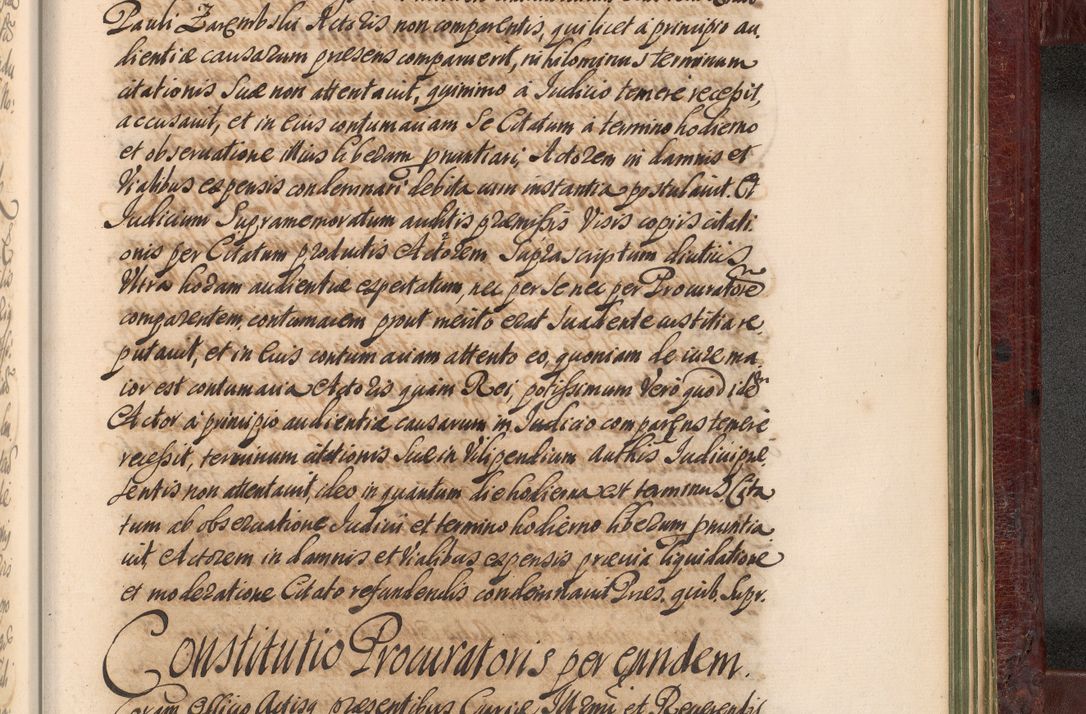 Pauli Zarembski Actoris non comparentis, qui licet à principio au
dientiæ causarum præsens comparuerit, nihilominus terminum
citationis suæ non attentavit, quinimo à Judicio temere recessit,
accusavit, et in eius contumaciam se Citatum a termino hodierno
et observatione illius liberum pnuntiari, Actorem in damnis et
Vialibus expensis condemnari debita cum instantia postulavit. Et
Judicium Supramemoratum auditis præmissis Visis copiis citati
onis per Citatum productis Actorem suprascriptum diutius
Ultra horam audientiæ expectatum, nec per se nec per Procuratore
comparentem, contumacem prout merito erat suadente iustitia re
putavit, et in eius contumaciam attento eo, quoniam de iure ma
ior est contumacia Actoris quam Rei, potissimum Vero quod ide
Actor à principio audientiæ causarum in Judicio comparens temere
recessit, terminum citationis suæ in Vilipendium authis Judicii præ
sentis non attentavit, ideo in quantum die hodierna est terminus Cita
tum ab observatione Judicii et termino hodierno liberum pnuntia
vit, Actorem in damnis et Vialibus expensis prævia liquidatione
et moderatione Citato refundendis condemnavit Pnes. quib. supr.
Constitutio Procuratoris per eundem.
Coram Officio Actisq præsentibus Curiæ Illmi et Reverendis